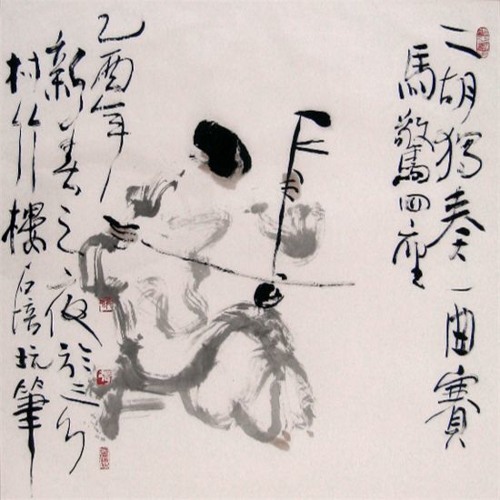 二胡獨奏一曲賽
馬驚四座
乙酉年
新春之夜於
村竹樓石培玩筆